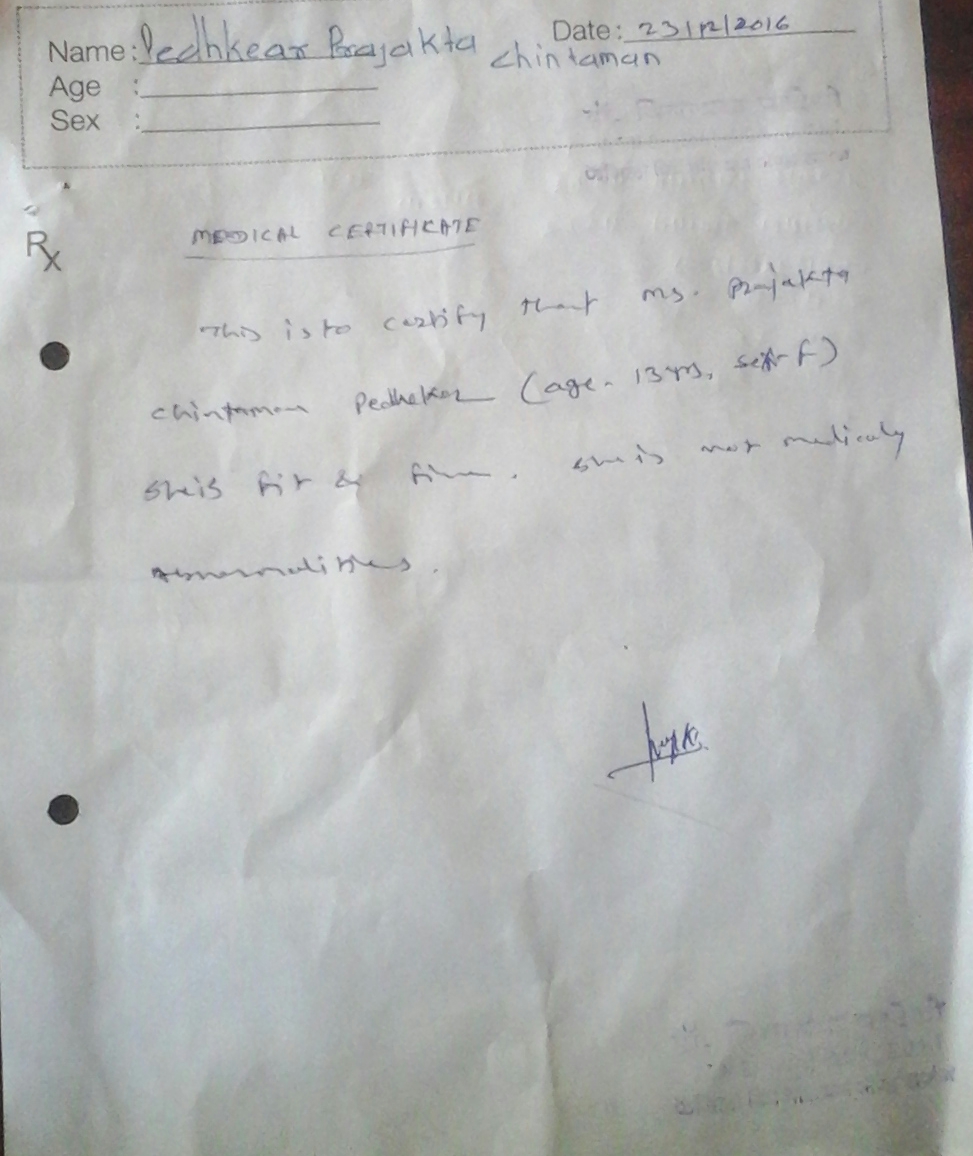 Date: 23/12/2016
Name: Pedhkear Prajakta Chintaman
Age :
Sex :
Rx
MEDICAL CERTIFICATE
This is to certify that ms. Prajakta
Chintaman Pedhekar (age- 13 yrs, sex- F)
She is fit & fine. She is not medicaly
Abnormalities.